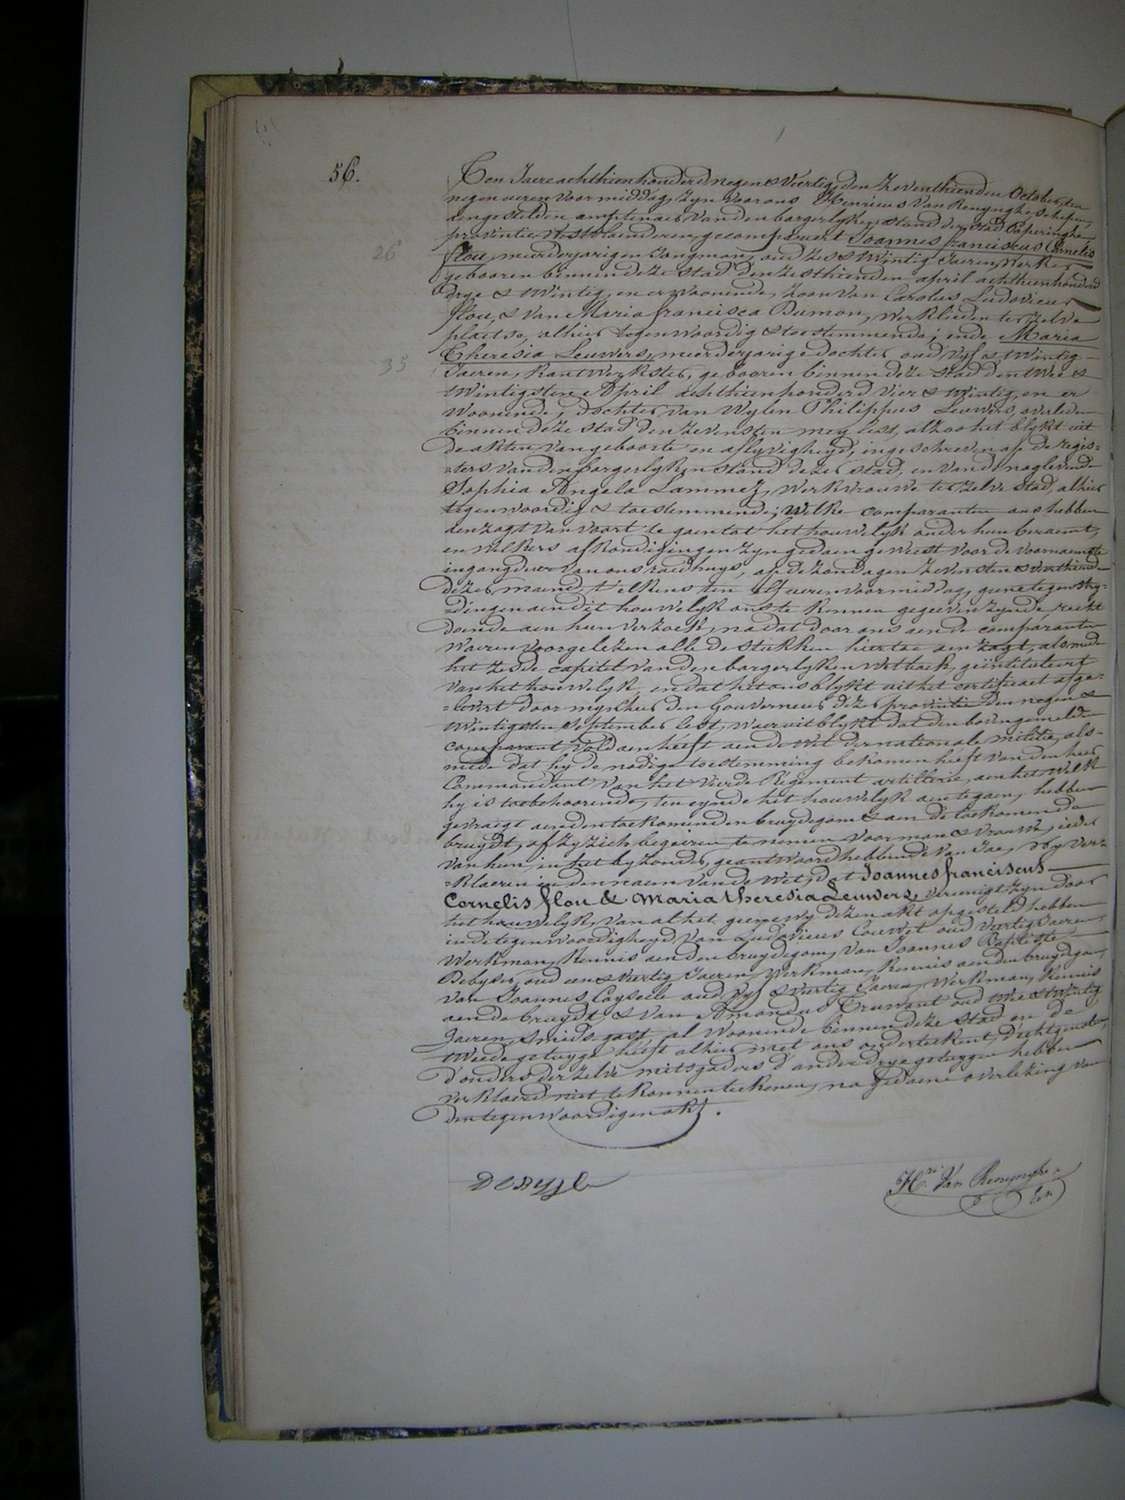 56.
Ten Jaere achthien honderd negen & Veertig, den Zeventhienden October, ten
negen ueren Voormiddag, Zyn Voor ons Henricus Van Renynghe, Schepen,
aengestelden amptenaer van den borgerlyken stand der stad Poperinghe
provintie Westvlaenderen, gecompareert Joannes franciscus Cornelis
26
flou, meerderjarigen Jongman, oud Zes & twintig Jaeren, Werk
gebooren binnen deze stad den Zesthienden april achthienhonderd
drye & twintig, en er woonende, Zoon Van Carolus Ludovicus
flou, & van Maria francisca Dumon, Werklieden ter Zelve
plaetse, alhier tegenwoordig & toestemmende; ende Maria
35
Theresia Leuwers, meerderjarige dochter, oud Vyf & twintig
Jaeren, Kantwerkster, gebooren binnen deze stad den twee &
twintigsten April achthien honderd Vier & twintig, en er
Woonende, dochter van Wylen Philippus Leuwers, overleden
binnen deze stad den Zevensten mey lest, alzoo het blykt uit
de akten van geboorte en aflyvigheyd, ingeschreven op de regis-
-ters van den borgerlyken stand dezer stad, en van de nagelevende
Sophia Angela Lammez, Werkvrouwe ter Zelve Stad, alhier
tegenwoordig & toestemmende; Welke comparanten ons hebben
aenzogt van voort te gaen tot het houwelyk onder hun beraemt,
en welkers afkondigingen Zyn gedaen geweest voor de voornaemste
ingangdeur van ons raedhuys, op de Zondagen Zevensten & veerthienden
dezer maend, t'elkens ten elf ueren voormiddag, geene tegenstry-
-dingen aen dit houwelyk ons te kennen gegeeven zynde, recht
doende aen hun verzoek, na dat door ons aen de comparanten
Waren voorgelezen alle de stukken hier toe aenzogt, alsmede
het Zesde capittel van den borgerlyken Wetboek, geïntituleert
Van het houwelyk, en dat het ons blykt uit het certificaet afge-
-levert door mynheer den Gouverneur dezer provintie den negen &
twintigsten September lest, waeruit blykt dat den bovengemelden
comparant voldaen heeft aen de Wet der nationale militie, als-
mede dat hy de nodige toestemming bekomen heeft van den heer
Commandant van het Vierde Regement artillerie, aen het welk
hy is toebehoorende, ten eynde het houwelyk aen te gaen, hebben
gevraegt aen den toekomenden bruydegom & aen de toekomende
bruydt, of Zy Zich begeeren te nemen voor man & vrouw, ieder
van hun in het byzonder, geantwoord hebbende van Jae, Wy ver-
-klaeren in den naem van de Wet, dat Joannes franciscus
Cornelis flou & Maria theresia Leuwers, vereenigt zyn door
het houwelyk van al het geene wy dezen akt opgesteld hebben
in de tegenwoordigheyd van Ludovicus Couwet oud Veertig Jaeren
Werkman, Kennis aen den bruydegom, van Joannes Baptiste
Debyser, oud een & Veertig Jaeren, Werkman, Kennis aen den bruydegom,
van Joannes Cayseele oud Vyf & Veertig Jaeren, Werkman, Kennis
aen de bruydt, & van Amandus Truwant oud twee & twintig
Jaeren, Smids gast, al Woonende binnen deze stad en de
tweede getuyge heeft alhier met ons onderteekent, d'echtgenoten,
d'ouders der Zelve mitsgaders d'andere drye getuygen hebben
verklaerd niet te konnen teekenen, na gedaene overlezing van
den tegenwoordigen akt.
Hri Van Renynghe